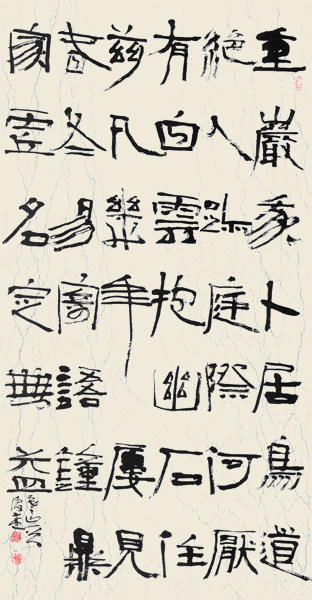 重巖我卜居鳥道
絕人跡庭際何所
有白雲抱幽石住
茲凡幾年屢見
春冬易寄語鐘鼎
家虛名定無益